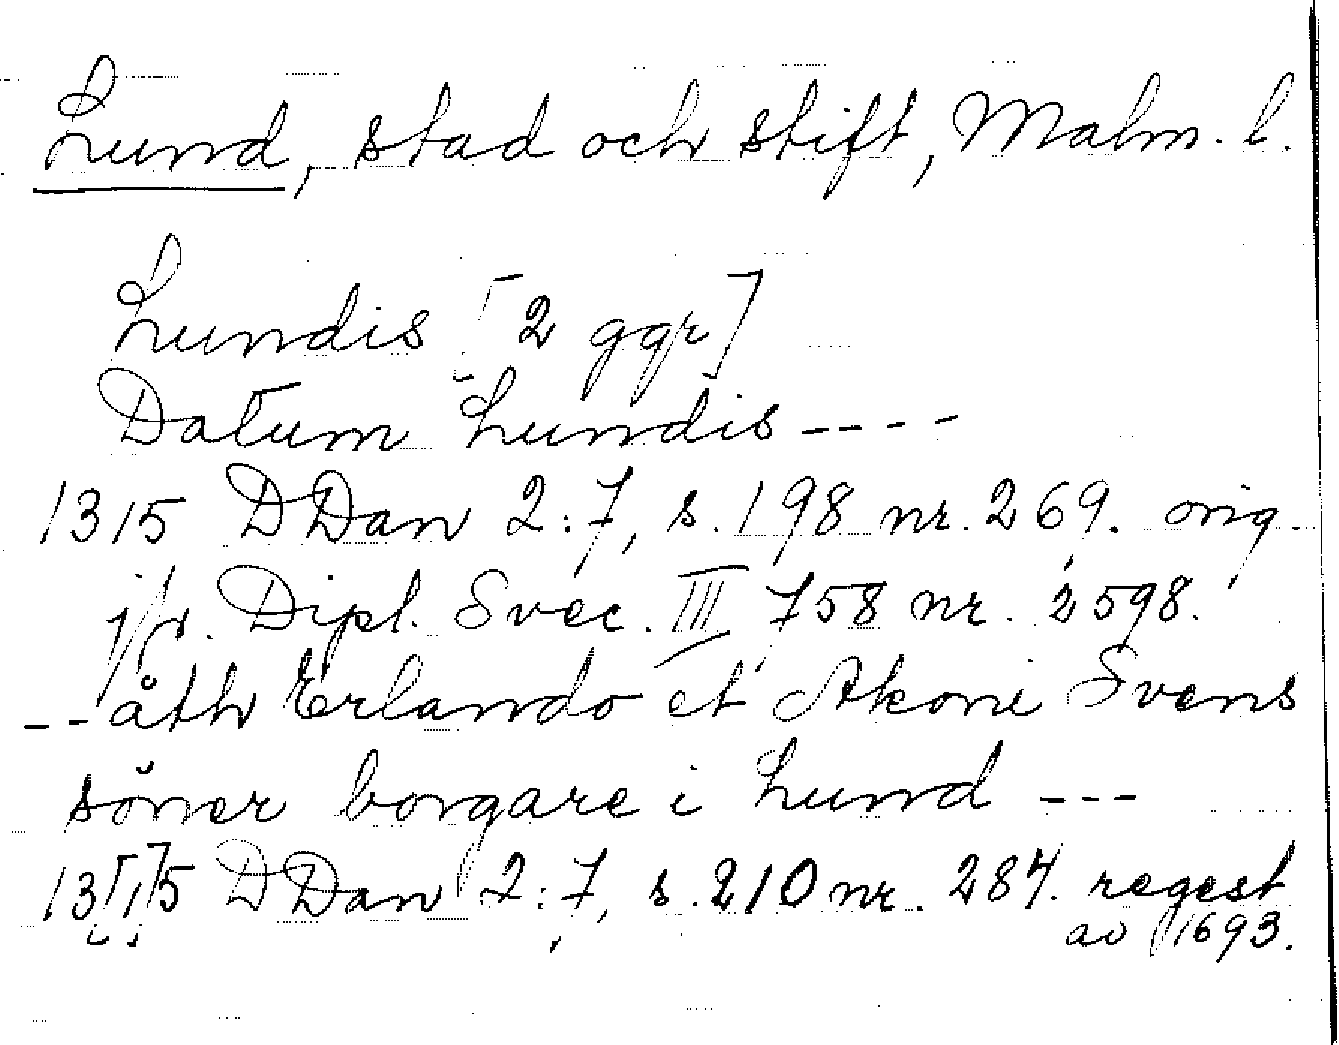 Lund, stad och stift, Malm. l.
Lundis [2 ggr]
Datum Lundis ----
1315 DDan 2:7, s. 198 nr. 269. orig.
jfr. Dipl. Svec. III 758 nr. 2598.
-- åth Erlando et Akoni Svens
söner borgare i Lund ---
13[1]5 DDan 2:7, s. 210 nr. 284. regest
av 1693.